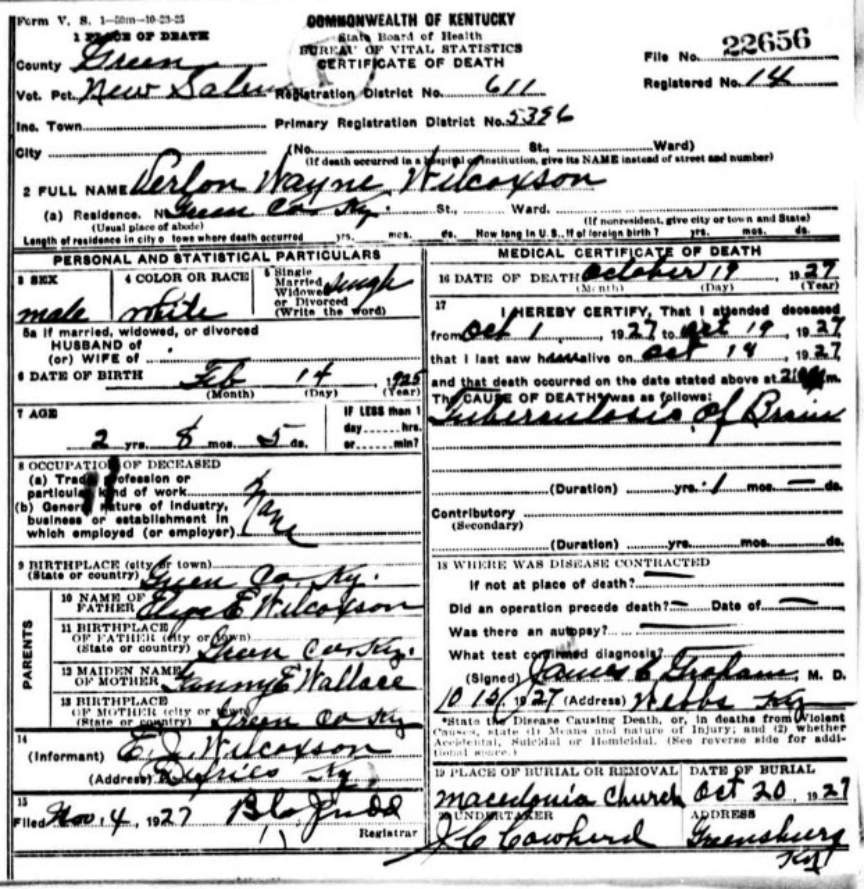 Form V. S. 1-50m-10-23-25
COMMONWEALTH OF KENTUCKY
State Board of Health
BUREAU OF VITAL STATISTICS
CERTIFICATE OF DEATH
1 PLACE OF DEATH
County Green
File No. 22656
Vot. Pct. New Salem Registration District No. 611
Registered No. 14
Inc. Town Primary Registration District No. 5396
City (No. St., Ward)
(If death occurred in a hospital or institution, give its NAME instead of street and number)
2 FULL NAME Verlon Wayne Wilcoxson
(a) Residence. No Green Co. Ky. St., Ward.
(Usual place of abode) (If nonresident, give city or town and State)
Length of residence in city o towe where death occurred yrs. mos. ds. How long in U. S., if of foreign birth? yrs. mos. ds.
PERSONAL AND STATISTICAL PARTICULARS
3 SEX
male
4 COLOR OR RACE
white
5 Single
Married
Widowed
or Divorced
(Write the word)
single
5a If married, widowed, or divorced
HUSBAND of
(or) WIFE of
6 DATE OF BIRTH Feb 14, 1925
(Month) (Day) (Year)
7 AGE
2 yrs. 8 mos. 5 ds.
IF LESS than 1
day hrs.
or min?
8 OCCUPATION OF DECEASED
(a) Trade, profession or
particular kind of work
(b) General nature of industry,
business or establishment in
which employed (or employer)
None
9 BIRTHPLACE (city or town)
(State or country) Green Co. Ky.
PARENTS
10 NAME OF
FATHER E Wilcoxson
11 BIRTHPLACE
OF FATHER (city or town)
(State or country) Green Co Ky.
12 MAIDEN NAME
OF MOTHER Fanny E Wallace
13 BIRTHPLACE
OF MOTHER (city or town)
(State or country) Green Co Ky
14
(Informant) E. J. Wilcoxson
(Address) Defries Ky.
15
Filed Nov. 4, 1927
Registrar
MEDICAL CERTIFICATE OF DEATH
16 DATE OF DEATH October 19, 1927
(Month) (Day) (Year)
17
I HEREBY CERTIFY, That I attended deceased
from Oct 1, 1927 to Oct 19, 1927
that I last saw him alive on Oct 18, 1927
and that death occurred on the date stated above at m.
The CAUSE OF DEATH was as follows:
Tuberculosis of Brain
(Duration) yrs. 1 mos. — ds.
Contributory
(Secondary)
(Duration) yrs. mos. ds.
18 WHERE WAS DISEASE CONTRACTED
If not at place of death? —
Did an operation precede death? — Date of —
Was there an autopsy? —
What test confirmed diagnosis?
(Signed) James C Graham, M. D.
10 15, 1927 (Address) Webbs Ky
*State the Disease Causing Death, or, in deaths from Violent
Causes, state (1) Means and nature of Injury; and (2) whether
Accidental, Suicidal or Homicidal. (See reverse side for addi-
tional space.)
19 PLACE OF BURIAL OR REMOVAL
Macedonia Church
DATE OF BURIAL
Oct 20, 1927
20 UNDERTAKER
J C Cowherd
ADDRESS
Greensburg
Ky